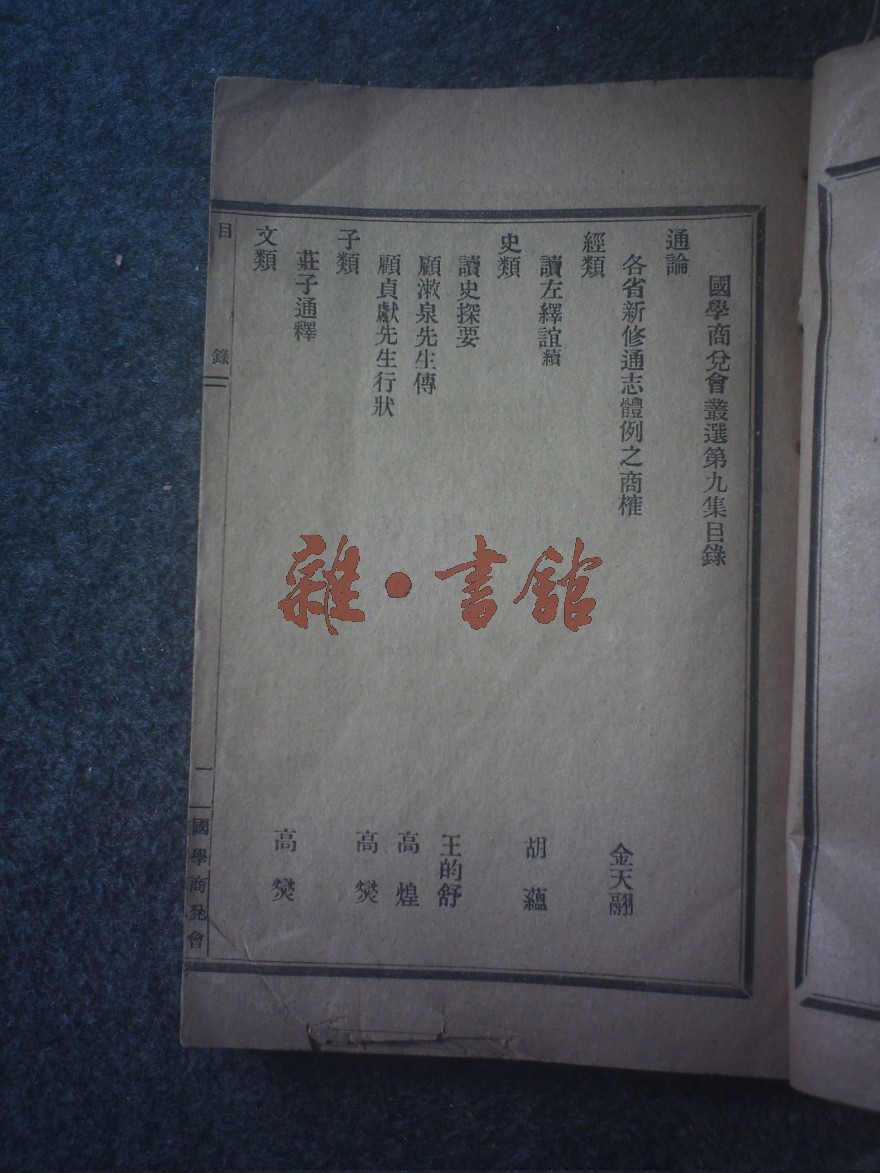 國學商兌會叢選第九集目錄
通論
各省新修通志體例之商榷 金天翮
經類
讀左繹誼續 胡蘊
史類
讀史探要 王的舒
顧漱泉先生傳 高煌
顧貞獻先生行狀 高燮
子類
莊子通釋 高燮
文類
目錄 一 國學商兌會
雜•書館